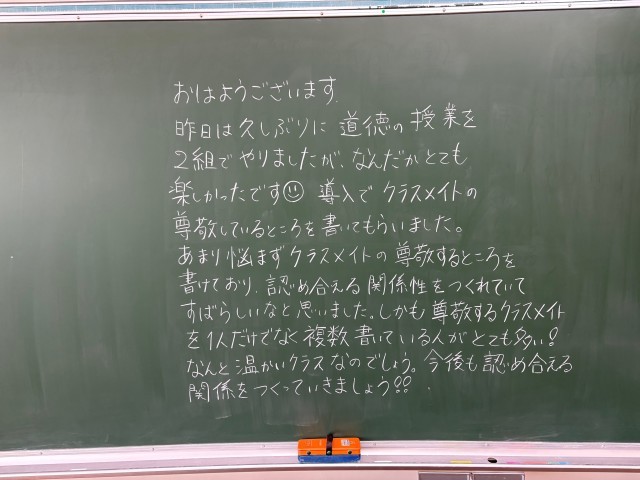 おはようございます.
昨日は久しぶりに道徳の授業を
2組でやりましたが、なんだかとても
楽しかったです☺ 導入でクラスメイトの
尊敬しているところを書いてもらいました。
あまり悩まずクラスメイトの尊敬するところを
書けており、認め合える関係性をつくれていて
すばらしいなと思いました。しかも尊敬するクラスメイト
を1人だけでなく複数書いている人がとても多い!
なんと温かいクラスなのでしょう。今後も認め合える
関係をつくっていきましょう!!.